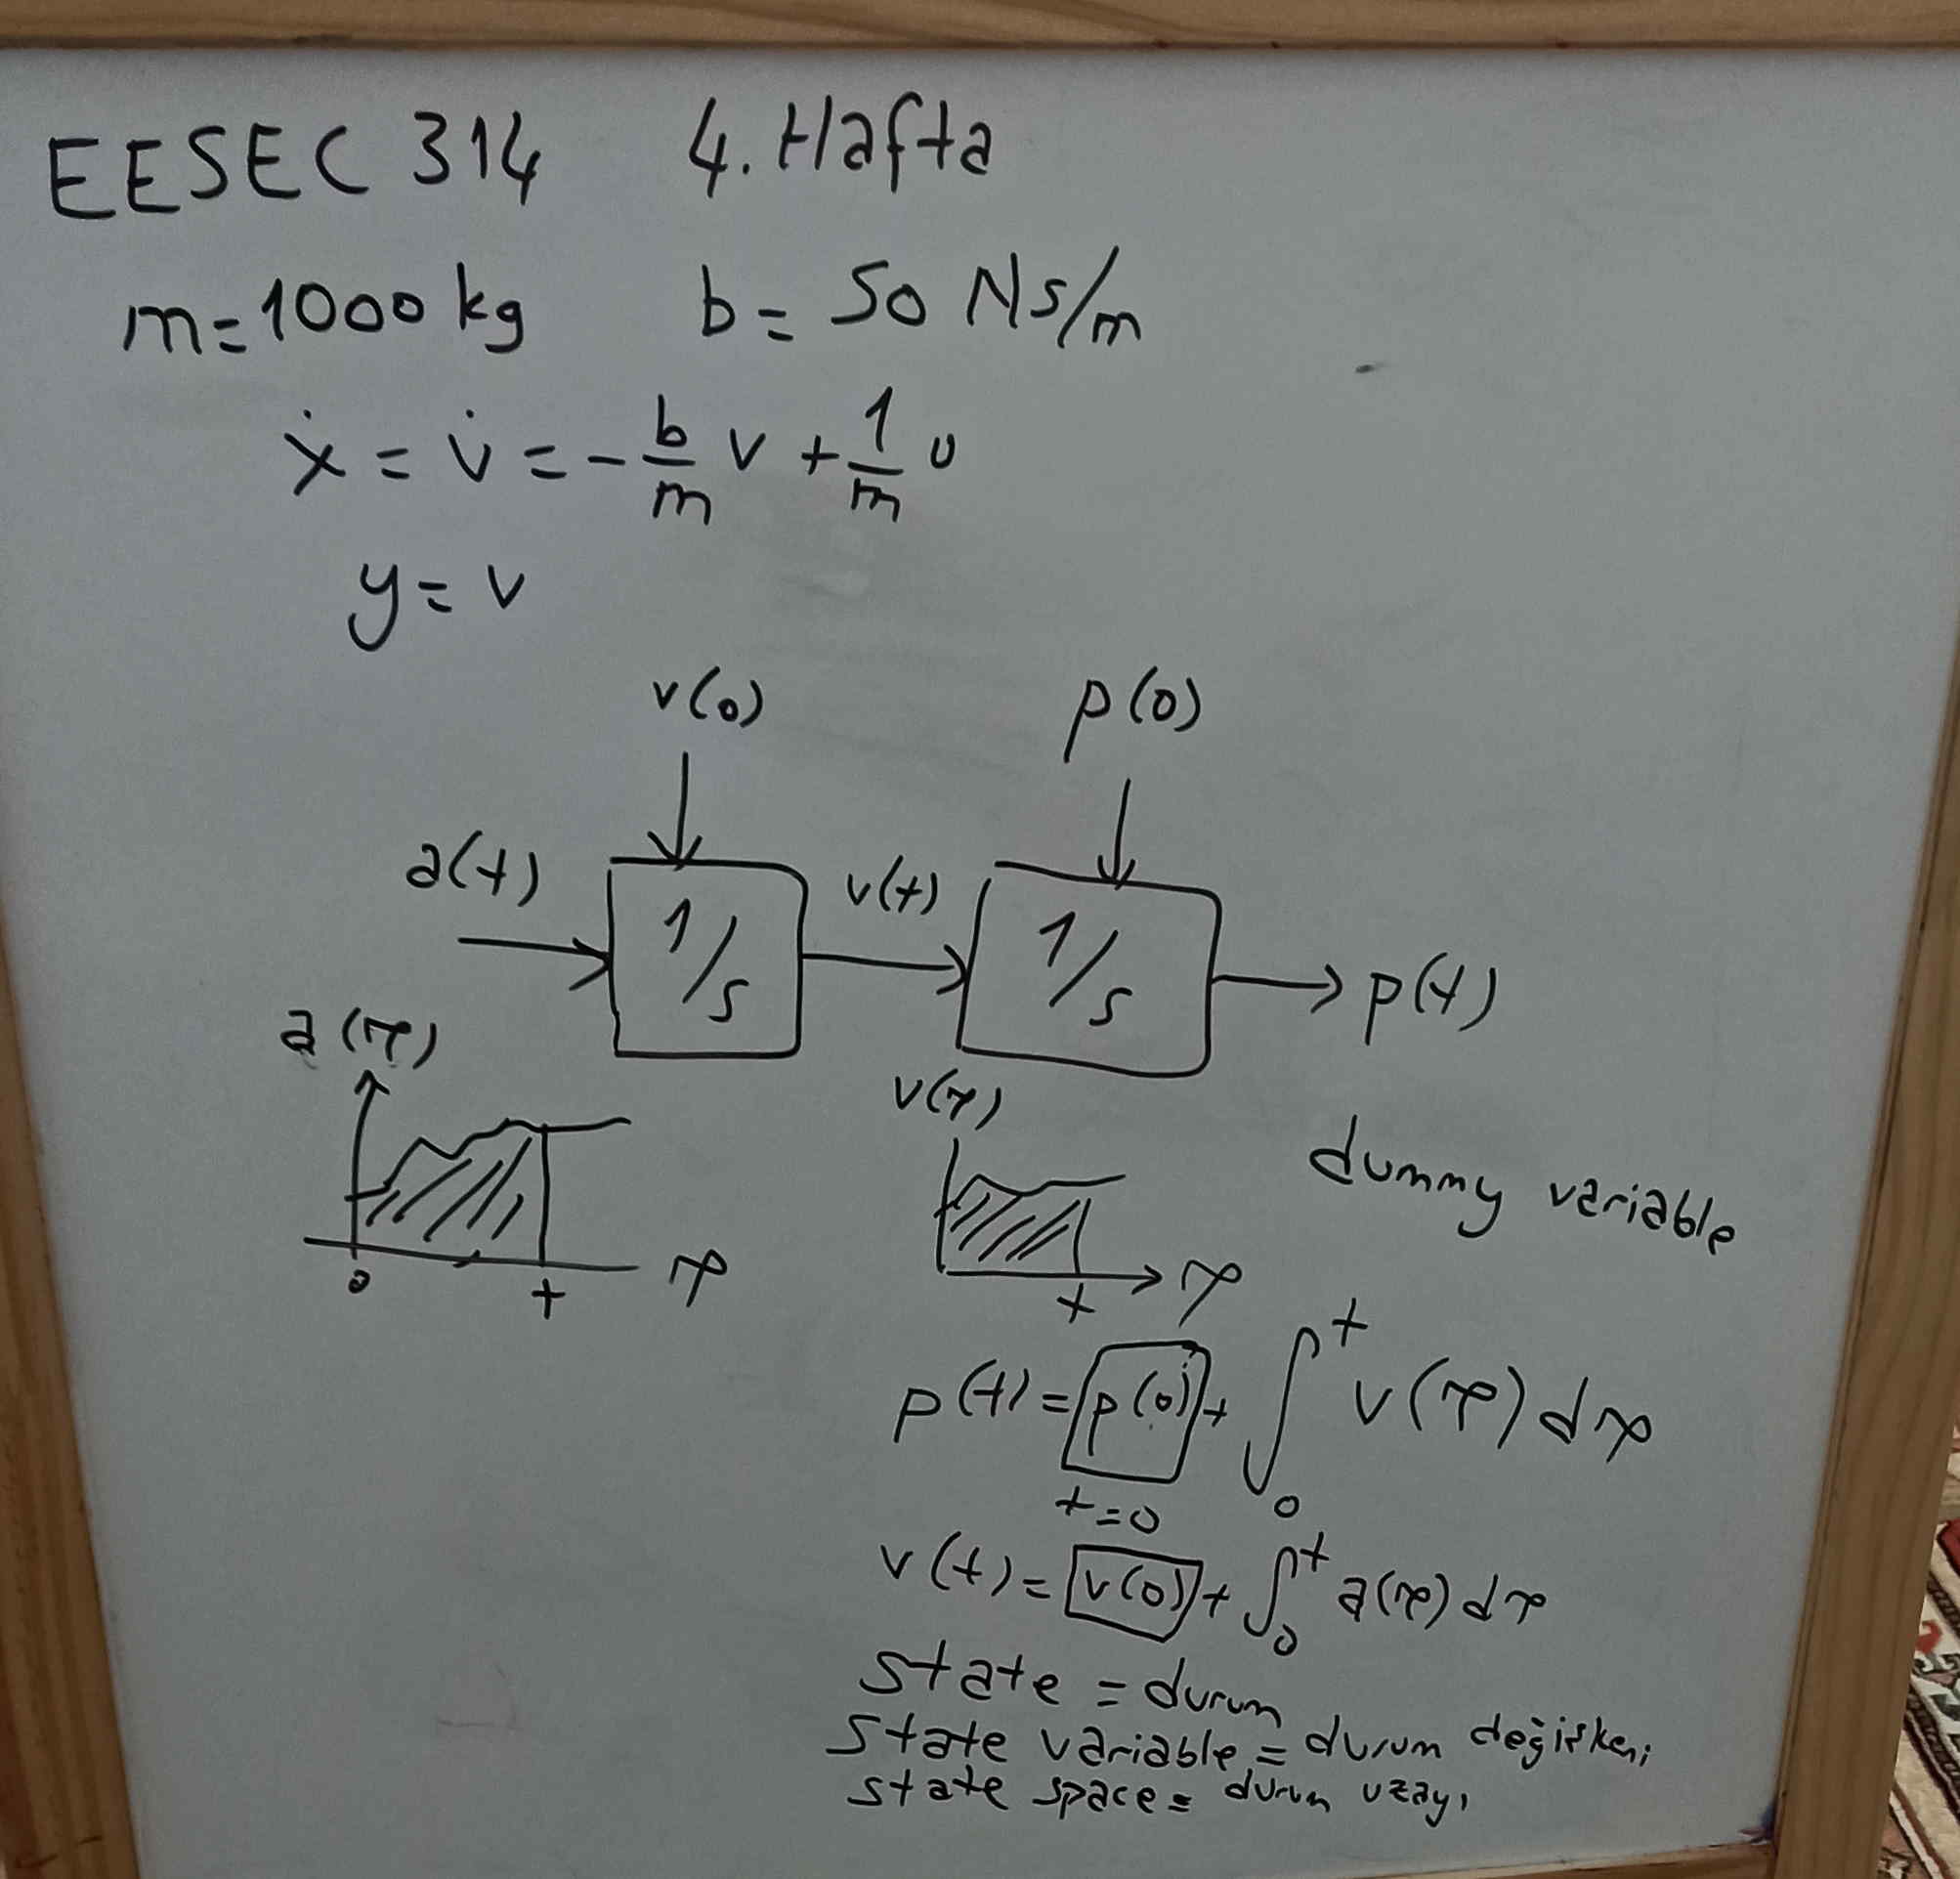 EESEC 314 4. Hafta
m=1000 kg b= 50 Ns/m
ẋ = v̇ = -b/m v + 1/m u
y = v
v(0) p(0)
a(t) v(t)
1/s 1/s
p(t)
a(τ)
v(τ)
dummy variable
0 t τ
t τ
p(t) = p(0) + ∫₀ᵗ v(τ) dτ
t=0
v(t) = v(0) + ∫₀ᵗ a(τ) dτ
state = durum
state variable = durum değişkeni
state space = durum uzayı